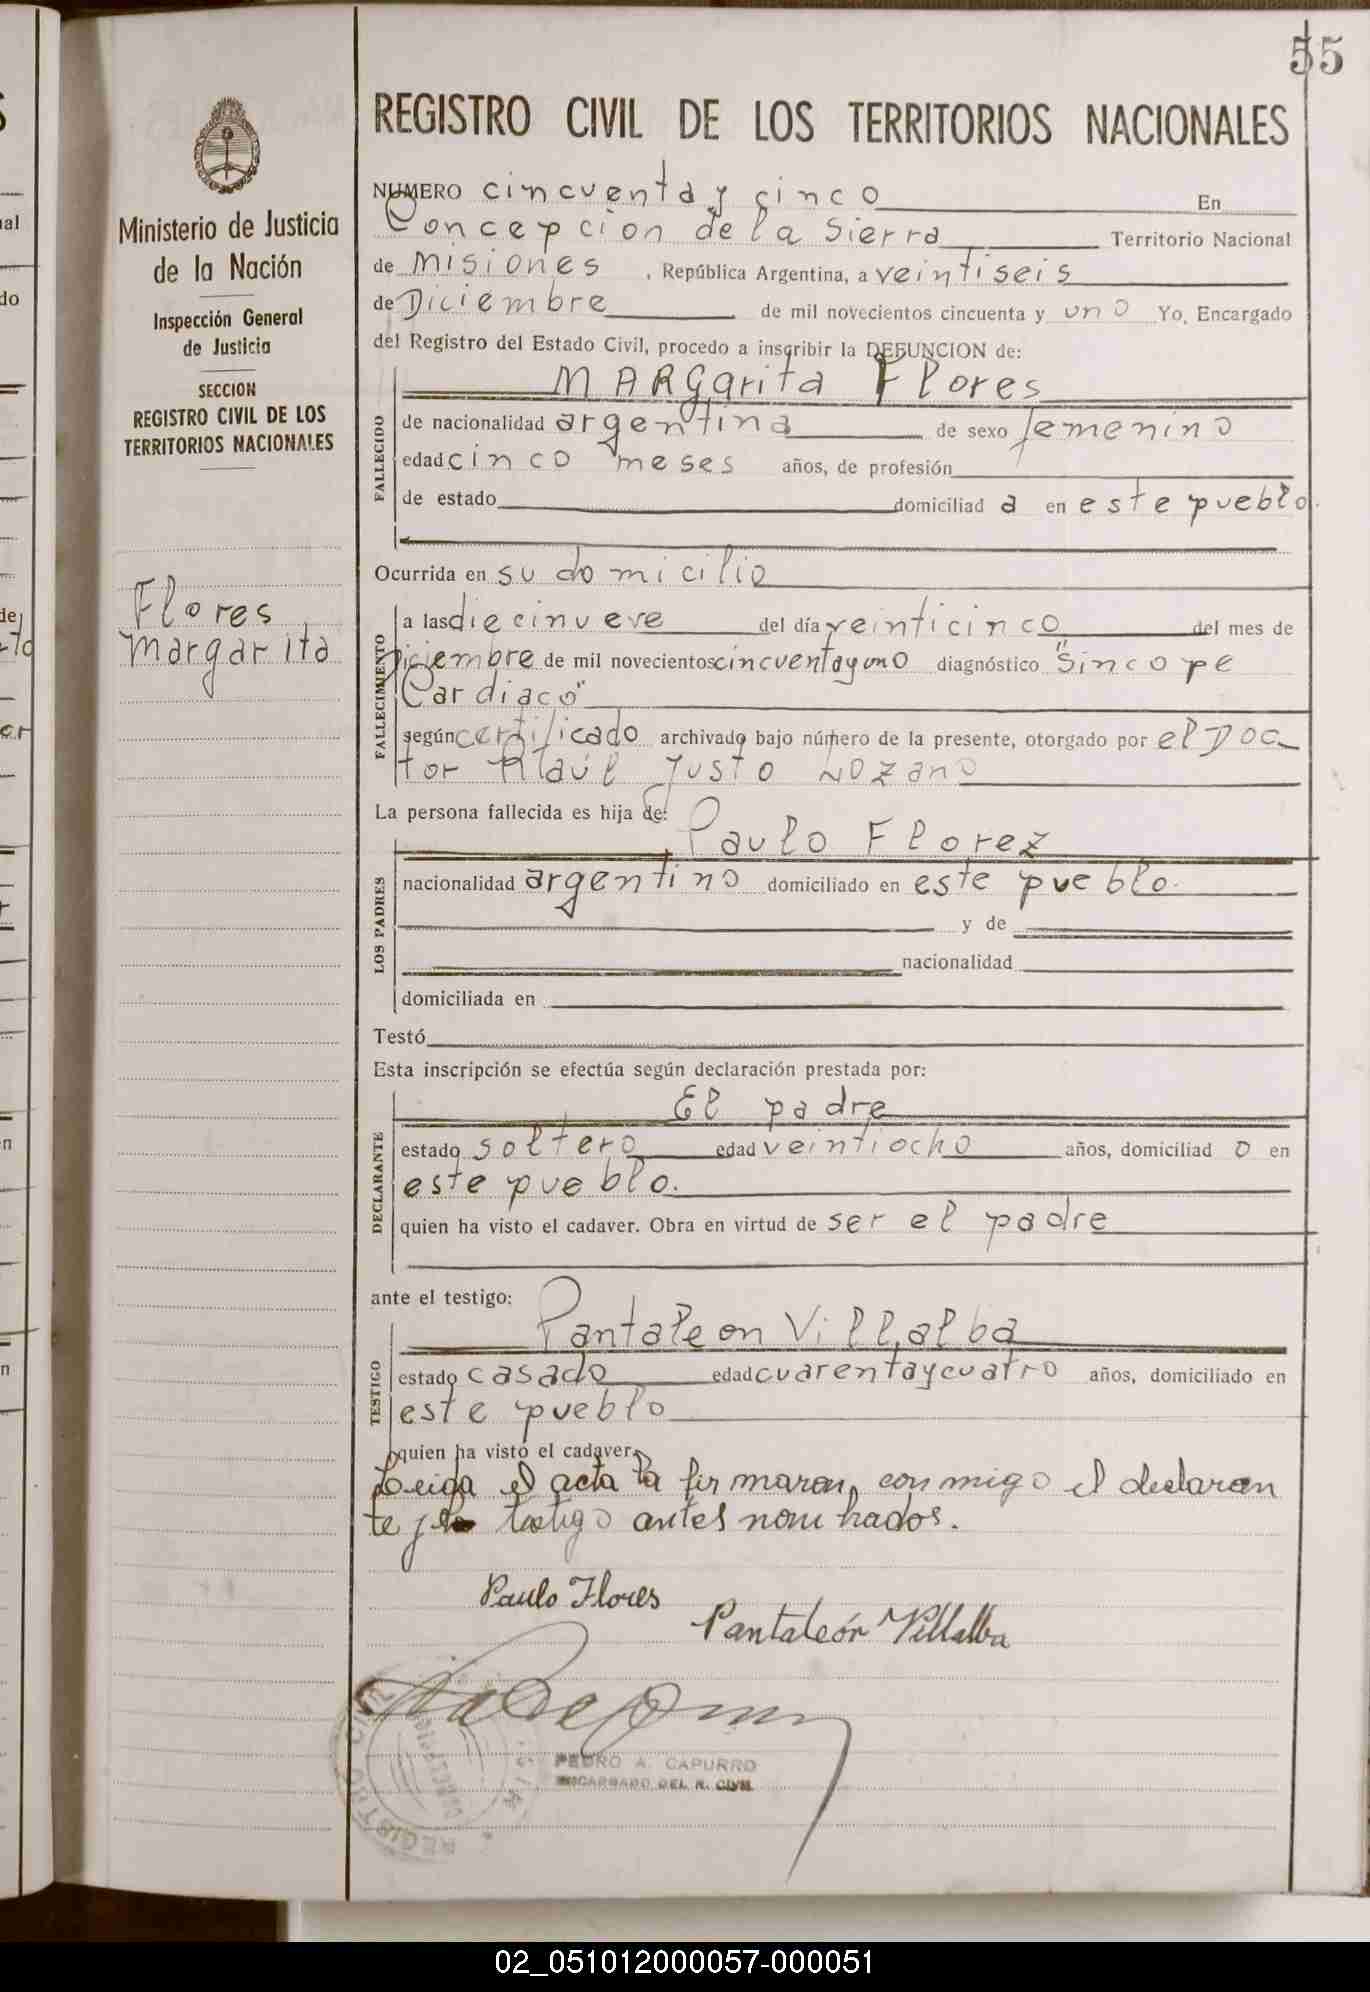 55
REGISTRO CIVIL DE LOS TERRITORIOS NACIONALES
Ministerio de Justicia
de la Nación
Inspección General
de Justicia
SECCION
REGISTRO CIVIL DE LOS
TERRITORIOS NACIONALES
Flores
Margarita
NUMERO cincuenta y cinco En
Concepcion de la Sierra Territorio Nacional
de Misiones, República Argentina, a veintiseis
de Diciembre de mil novecientos cincuenta y uno Yo, Encargado
del Registro del Estado Civil, procedo a inscribir la DEFUNCION de:
FALLECIDO
MARGarita Flores
de nacionalidad argentina de sexo femenino
edad cinco meses años, de profesión
de estado domiciliad a en este pueblo.
Ocurrida en su domicilio
FALLECIMIENTO
a las diecinueve del día veinticinco del mes de
Diciembre de mil novecientos cincuentayuno diagnóstico "Sincope
Cardiaco"
según certificado archivado bajo número de la presente, otorgado por el Doc
tor Raúl Justo Lozano
La persona fallecida es hija de:
LOS PADRES
Paulo Florez
nacionalidad argentino domiciliado en este pueblo.
y de
nacionalidad
domiciliada en
Testó
Esta inscripción se efectúa según declaración prestada por:
DECLARANTE
El padre
estado soltero edad veintiocho años, domiciliad o en
este pueblo.
quien ha visto el cadaver. Obra en virtud de ser el padre
ante el testigo:
TESTIGO
Pantaleon Villalba
estado casado edad cuarentaycuatro años, domiciliado en
este pueblo
quien ha visto el cadaver.
Leida el acta la firmaran conmigo el declaran
te y testigo antes nombrados.
Paulo Flores
Pantaleón Villalba
PEDRO A. CAPURRO
ENCARGADO DEL R. CIVIL
REGISTRO CIVIL
02_051012000057-000051